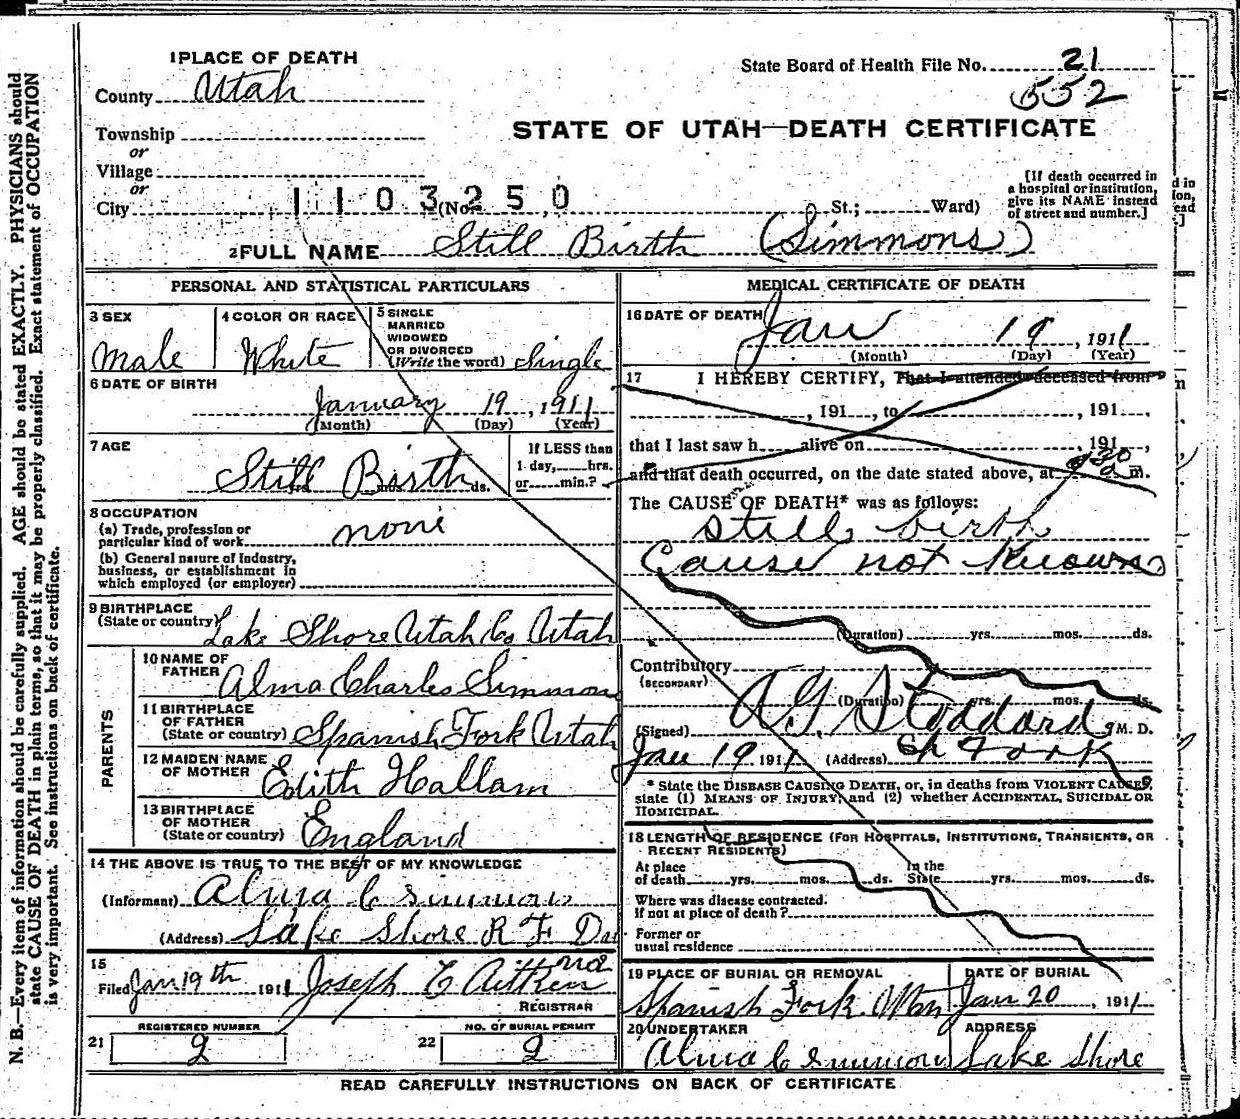 1 PLACE OF DEATH
State Board of Health File No. 21
County Utah
552
Township
STATE OF UTAH—DEATH CERTIFICATE
or
Village
or
City 1103250 (No. St.; Ward)
[If death occurred in
a hospital or institution,
give its NAME instead
of street and number.]
2 FULL NAME Still Birth (Simmons)
PERSONAL AND STATISTICAL PARTICULARS
3 SEX
Male
4 COLOR OR RACE
White
5 SINGLE
MARRIED
WIDOWED
OR DIVORCED
(Write the word) Single
6 DATE OF BIRTH
January 19, 1911
(Month) (Day) (Year)
7 AGE
Still Birth
yrs. mos. ds.
If LESS than
1 day, hrs.
or min.?
8 OCCUPATION
(a) Trade, profession or
particular kind of work none
(b) General nature of industry,
business, or establishment in
which employed (or employer)
9 BIRTHPLACE
(State or country) Lake Shore Utah Co Utah
PARENTS
10 NAME OF
FATHER Alma Charles Simmons
11 BIRTHPLACE
OF FATHER
(State or country) Spanish Fork Utah
12 MAIDEN NAME
OF MOTHER Edith Hallam
13 BIRTHPLACE
OF MOTHER
(State or country) England
14 THE ABOVE IS TRUE TO THE BEST OF MY KNOWLEDGE
(Informant) Alma C Simmons
(Address) Lake Shore R F D
15
Filed Jan 19th 1911 Joseph E Aitken
REGISTRAR
REGISTERED NUMBER
21 2
NO. OF BURIAL PERMIT
22 2
MEDICAL CERTIFICATE OF DEATH
16 DATE OF DEATH Jan 19 1911
(Month) (Day) (Year)
17 I HEREBY CERTIFY, That I attended deceased from
, 191 , to , 191 ,
that I last saw h alive on , 191 ,
and that death occurred, on the date stated above, at m.
The CAUSE OF DEATH* was as follows:
Still birth
Cause not Known
(Duration) yrs. mos. ds.
Contributory
(SECONDARY)
(Duration) yrs. mos. ds.
(Signed) A.G. Stoddard, M. D.
Jan 19 1911 (Address) Sp Fork
* State the DISEASE CAUSING DEATH, or, in deaths from VIOLENT CAUSES,
state (1) MEANS OF INJURY; and (2) whether ACCIDENTAL, SUICIDAL OR
HOMICIDAL.
18 LENGTH OF RESIDENCE (FOR HOSPITALS, INSTITUTIONS, TRANSIENTS, OR
RECENT RESIDENTS)
At place
of death yrs. mos. ds.
In the
State yrs. mos. ds.
Where was disease contracted.
if not at place of death?
Former or
usual residence
19 PLACE OF BURIAL OR REMOVAL
Spanish Fork
DATE OF BURIAL
Jan 20, 1911
20 UNDERTAKER
Alma C Simmons
ADDRESS
Lake Shore
READ CAREFULLY INSTRUCTIONS ON BACK OF CERTIFICATE
N. B.—Every item of information should be carefully supplied. AGE should be stated EXACTLY. PHYSICIANS should
state CAUSE OF DEATH in plain terms, so that it may be properly classified. Exact statement of OCCUPATION
is very important. See instructions on back of certificate.